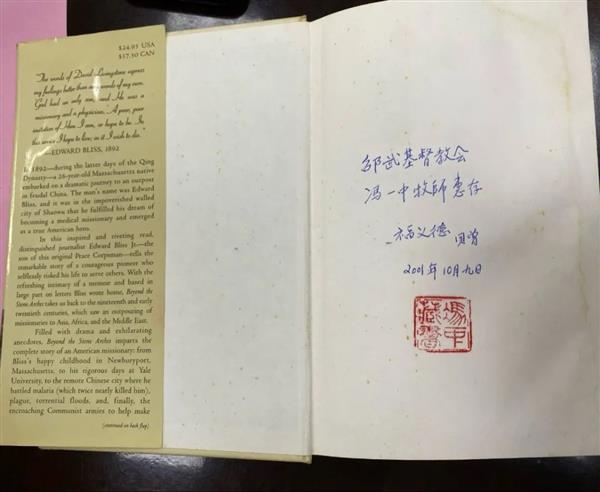 $24.95 USA
$37.50 CAN
"The words of David Livingstone express
my feelings better than any words of my own:
'God had an only son, and He was a
missionary and a physician.' A poor, poor
imitation of Him I am, or hope to be. In
this service I hope to live; in it I wish to die."
—EDWARD BLISS, 1892
In 1892—during the latter days of the Qing
Dynasty—a 26-year-old Massachusetts native
embarked on a dramatic journey to an outpost
in feudal China. The man's name was Edward
Bliss, and it was in the impoverished walled
city of Shaowu that he fulfilled his dream of
becoming a medical missionary and emerged
as a true American hero.
In this inspired and riveting read,
distinguished journalist Edward Bliss Jr.—the
son of this original Peace Corpsman—tells the
remarkable story of a courageous pioneer who
selflessly risked his life to serve others. With the
refreshing intimacy of a memoir and based in
large part on letters Bliss wrote home, Beyond the
Stone Arches takes us back to the nineteenth and early
twentieth centuries, which saw an outpouring of
missionaries to Asia, Africa, and the Middle East.
Filled with drama and exhilarating
anecdotes, Beyond the Stone Arches imparts the
complete story of an American missionary: from
Bliss's happy childhood in Newburyport,
Massachusetts, to his rigorous days at Yale
University, to the remote Chinese city where he
battled malaria (which twice nearly killed him),
plague, torrential floods, and, finally, the
encroaching Communist armies to help make
(continued on back flap)
邵武基督教会
冯一中牧師惠存
福义德 贈
2001年10月九日
馮一中
藏書